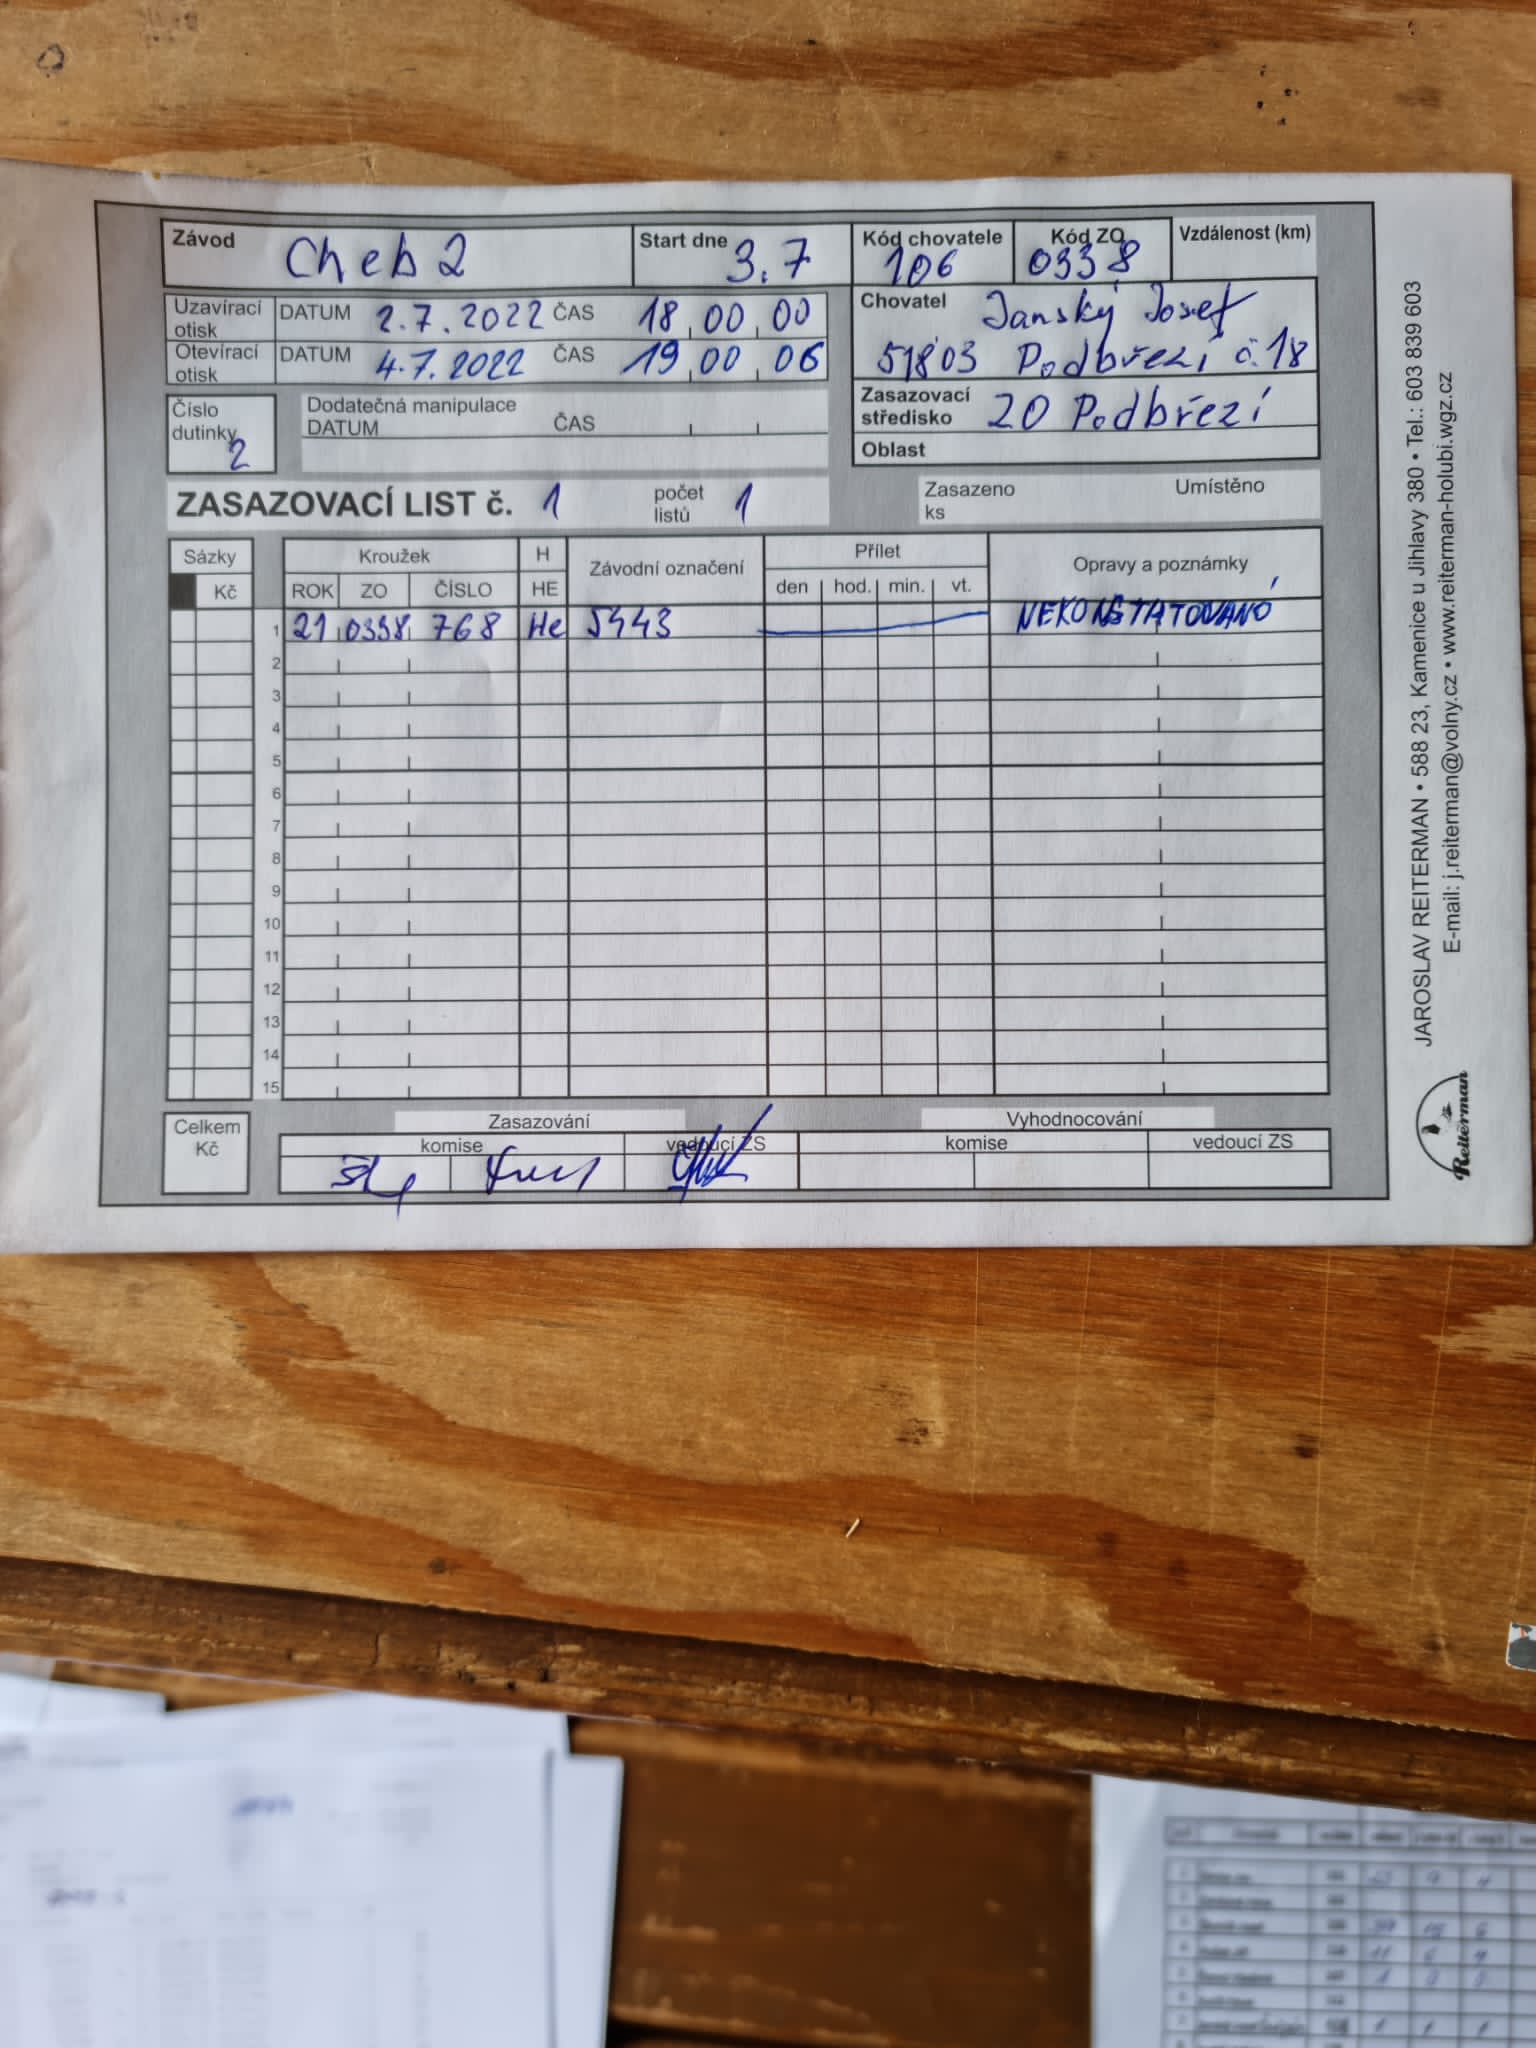 Závod Cheb 2 Start dne 3.7 Kód chovatele 106 Kód ZO 0338 Vzdálenost (km)
Uzavírací otisk DATUM 2.7.2022 ČAS 18 00 00
Otevírací otisk DATUM 4.7.2022 ČAS 19 00 06
Chovatel Janský Josef
51803 Podbřezí č.18
Číslo dutinky 2
Dodatečná manipulace
DATUM ČAS
Zasazovací středisko 20 Podbřezí
Oblast
ZASAZOVACÍ LIST č. 1 počet listů 1 Zasazeno ks Umístěno
Sázky Kroužek H Závodní označení Přílet Opravy a poznámky
Kč ROK ZO ČÍSLO HE den hod. min. vt.
1 21 0338 768 He 5443 NEKONSTATOVÁNO
2
3
4
5
6
7
8
9
10
11
12
13
14
15
Celkem Kč
Zasazování Vyhodnocování
komise vedoucí ZS komise vedoucí ZS
JAROSLAV REITERMAN • 588 23, Kamenice u Jihlavy 380 • Tel.: 603 839 603
E-mail: j.reiterman@volny.cz • www.reiterman-holubi.wgz.cz
Reiterman